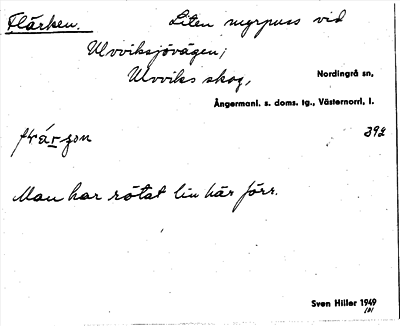 Flärken. Liten myrpuss vid
Ulvviksjövägen;
Ulvviks skog,
Nordingrå sn,
Ångermanl. s. doms. tg., Västernorrl. l.
392
Man har rötat lin här förr.
Sven Hiller 1949